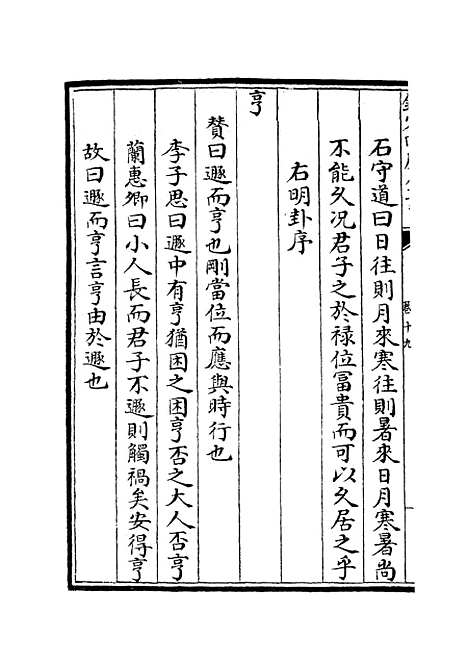 石守道曰日往則月來寒往則暑來日月寒暑尚
不能久况君子之於禄位冨貴而可以久居之乎
右明卦序
亨
賛曰遯而亨也剛當位而應與時行也
李子思曰遯中有亨猶困之困亨否之大人否亨
蘭惠卿曰小人長而君子不遯則觸禍矣安得亨
故曰遯而亨言亨由於遯也
卷十九